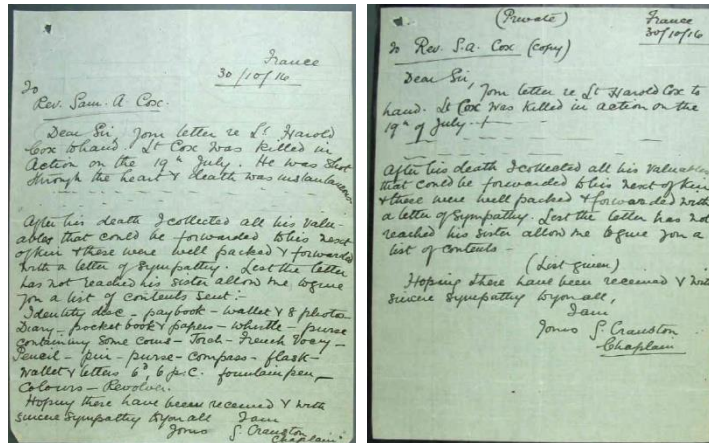 France
30/10/16
To
Rev. Sam. A. Cox.
Dear Sir, Your letter re Lt Harold
Cox to hand. Lt Cox was killed in
Action on the 19th July. He was shot
through the heart & death was instantaneous
After his death I collected all his valu-
ables that could be forwarded to his next
of kin & these were well packed & forwarded
with a letter of sympathy. Lest the letter
has not reached his sister allow me to give
you a list of contents sent:-
Identity disc - paybook - wallet & 8 photos
Diary - pocket book & papers - whistle - purse
containing some coins - Torch - French Vocy -
Pencil - pin - purse - compass - flask -
wallet & letters 6d, 6 p.c. fountain pen,
Colours - Revolver.
Hoping these have been received & with
sincere sympathy to you all I am
Yours S. Cranston
Chaplain
(Private)
France
30/10/16
To Rev. S. A. Cox (copy)
Dear Sir,
Your letter re Lt Harold Cox to
hand. Lt Cox was killed in action on the
19th of July.
After his death I collected all his valuables
that could be forwarded to his next of kin
& these were well packed & forwarded with
a letter of sympathy. Lest the letter has not
reached his sister allow me to give you a
list of contents -
(List given)
Hoping these have been received & with
sincere sympathy to you all,
I am
Yours S. Cranston
Chaplain